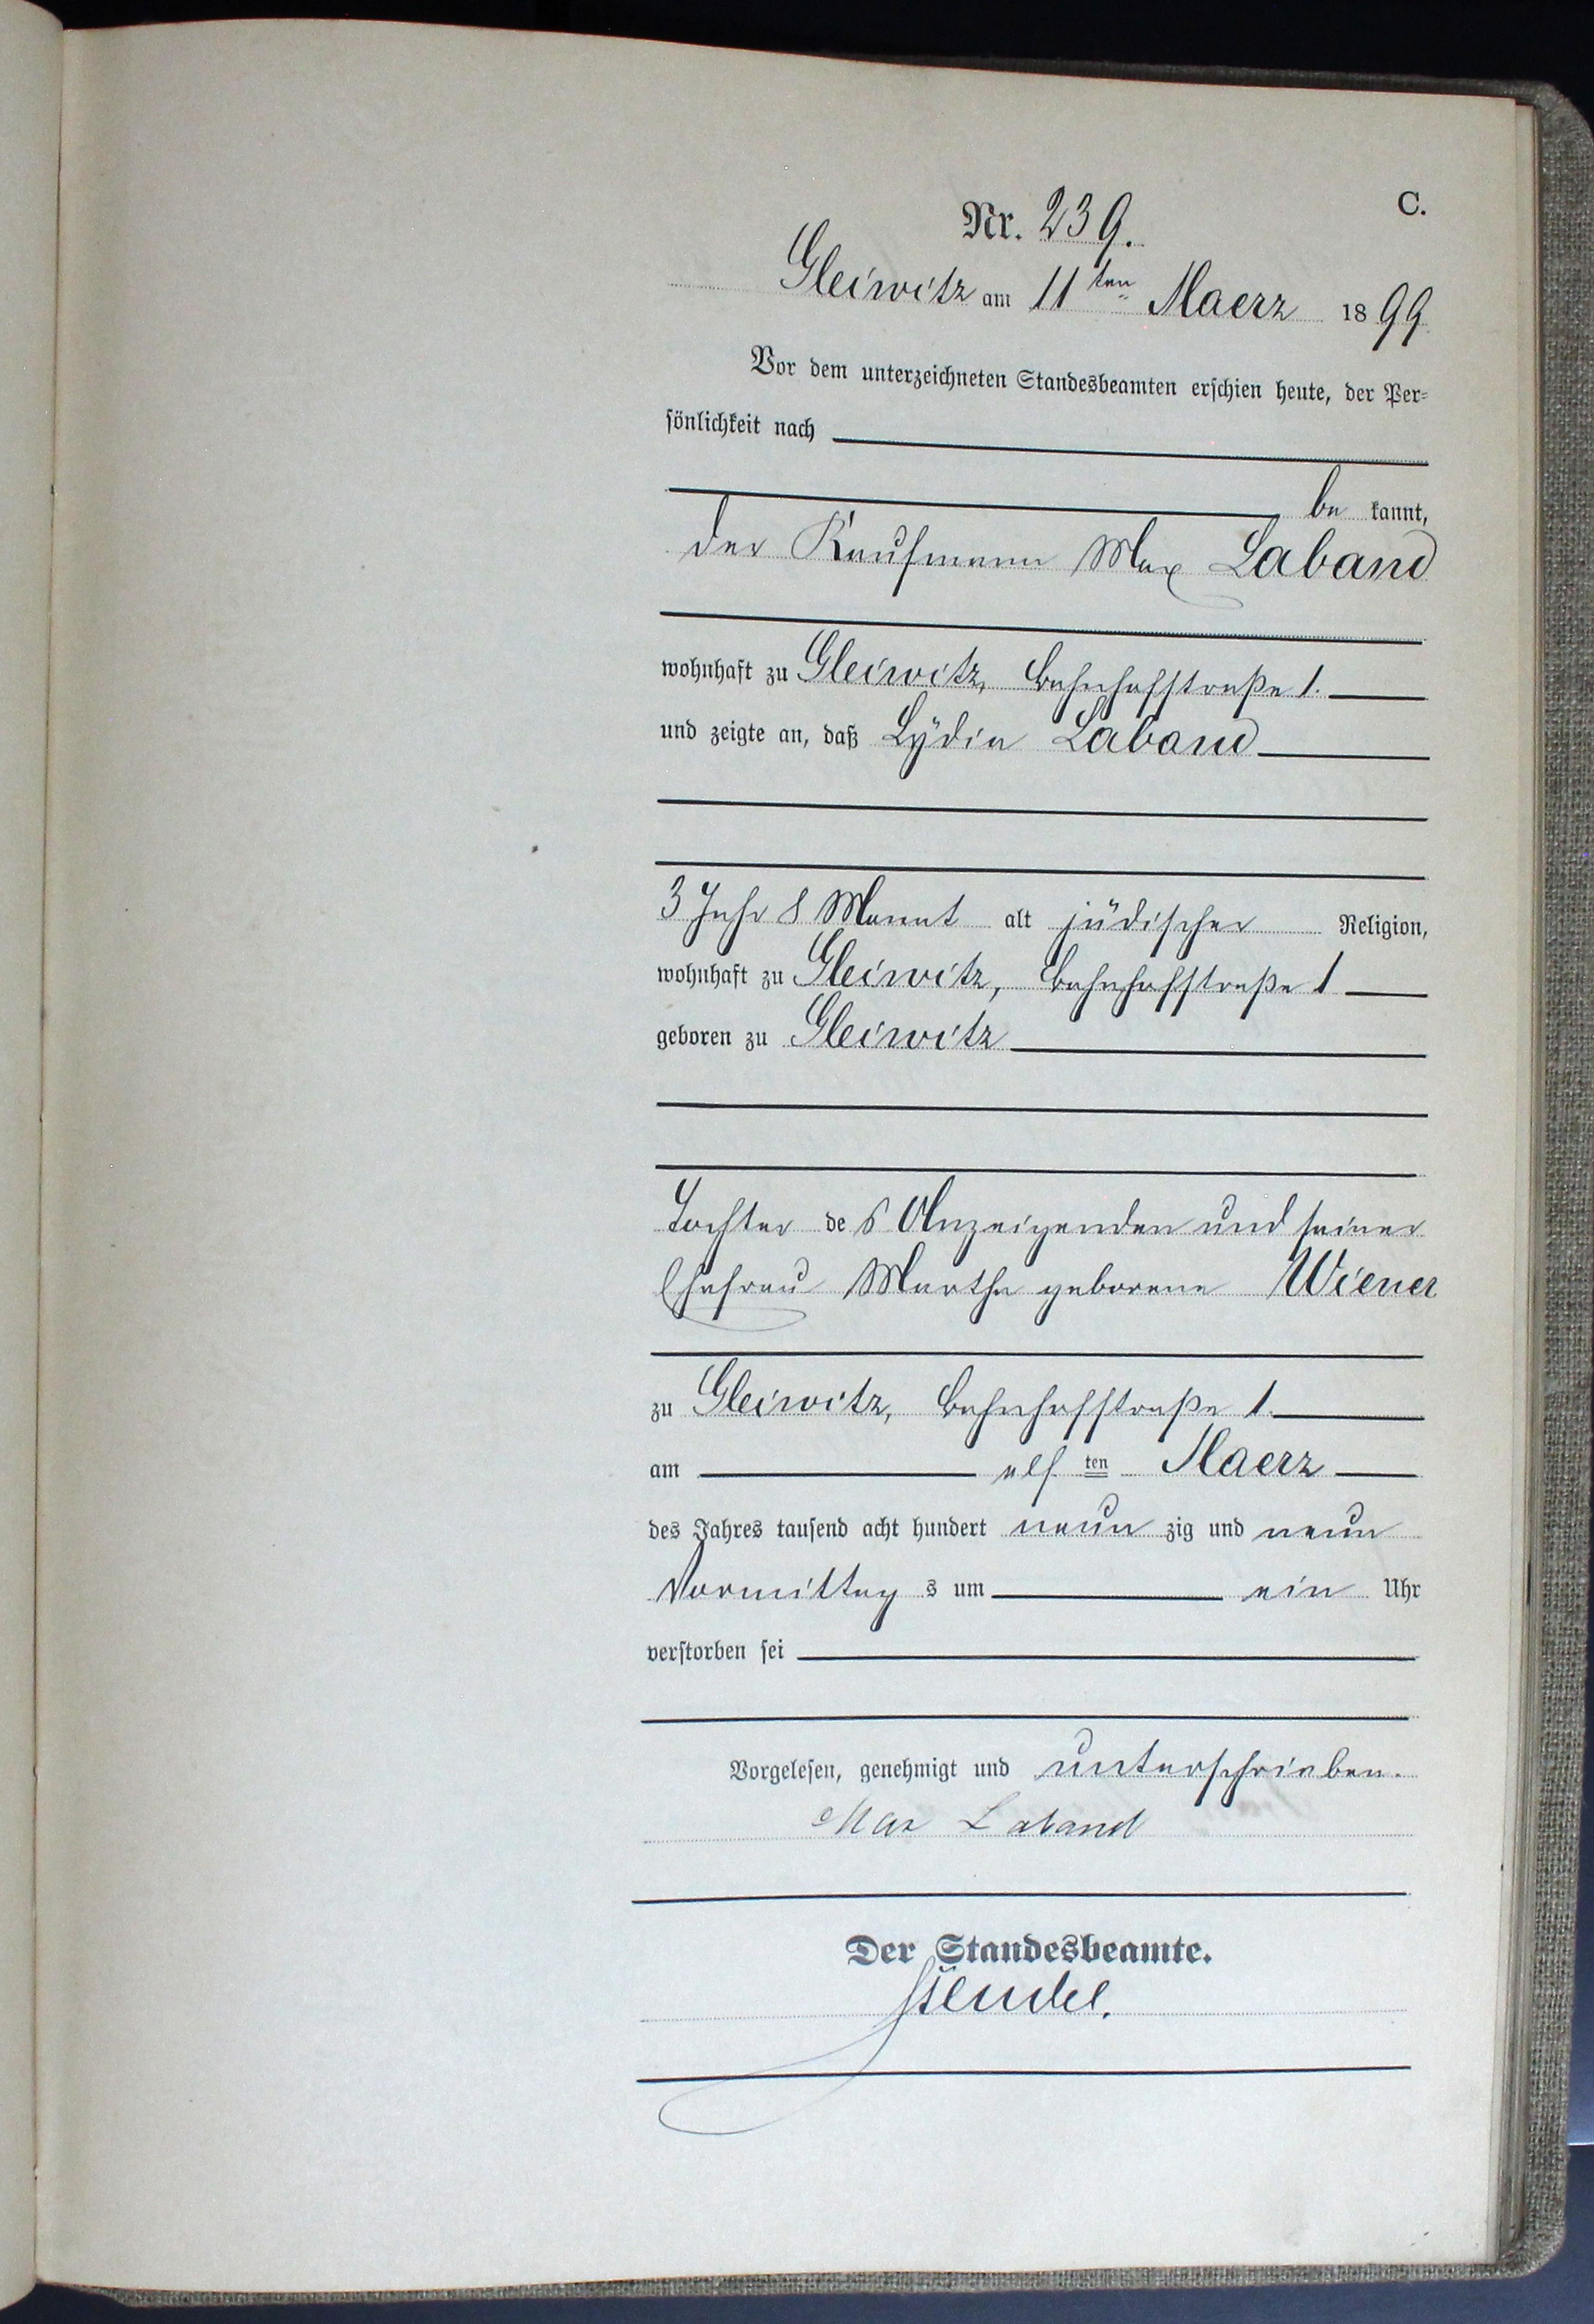 C.
Nr. 239.
Gleiwitz am 11ten Maerz 1899
Vor dem unterzeichneten Standesbeamten erschien heute, der Per=
sönlichkeit nach
be kannt,
der Kaufmann Max Laband
wohnhaft zu Gleiwitz, Bahnhofstraße 1.
und zeigte an, daß Lydia Laband
3 Jahr 8 Monat alt jüdischer Religion,
wohnhaft zu Gleiwitz, Bahnhofstraße 1
geboren zu Gleiwitz
Tochter des Anzeigenden und seiner
Ehefrau Martha geborene Wiener
zu Gleiwitz, Bahnhofstraße 1.
am elf ten Maerz
des Jahres tausend acht hundert neun zig und neun
Vormittag s um ein Uhr
verstorben sei
Vorgelesen, genehmigt und unterschrieben.
Max Laband
Der Standesbeamte.